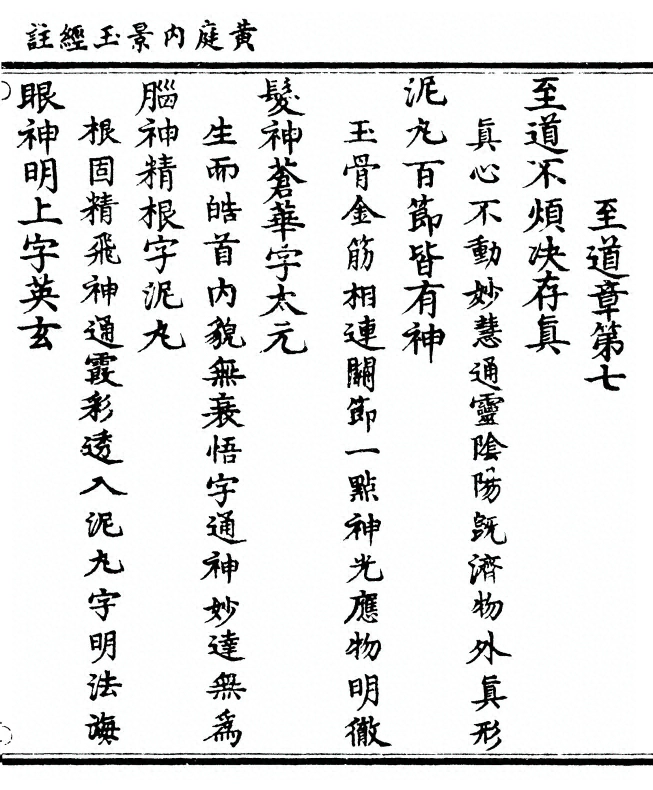 黄庭內景玉經註
至道章第七
至道不煩决存真
真心不動妙慧通靈陰陽既濟物外真形
泥丸百節皆有神
玉骨金筋相連關節一點神光應物明徹
髮神蒼華字太元
生而皓首內貌無衰悟字通神妙達無為
腦神精根字泥丸
根固精飛神通霞彩透入泥丸字明法海
眼神明上字英玄